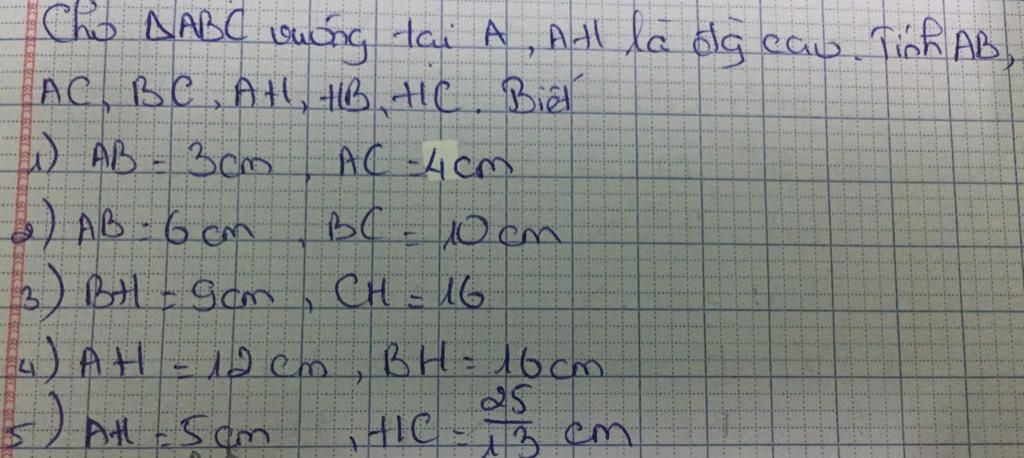 Cho ΔABC vuông tại A, AH là đg cao. Tính AB,
AC, BC, AH, HB, HC. Biết
1) AB = 3cm, AC = 4cm
2) AB = 6cm, BC = 10cm
3) BH = 9cm, CH = 16
4) AH = 12cm, BH = 16cm
5) AH = 5cm, HC = 25/13 cm